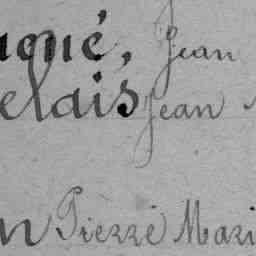 Jean
elais Jean
Pierre Mari